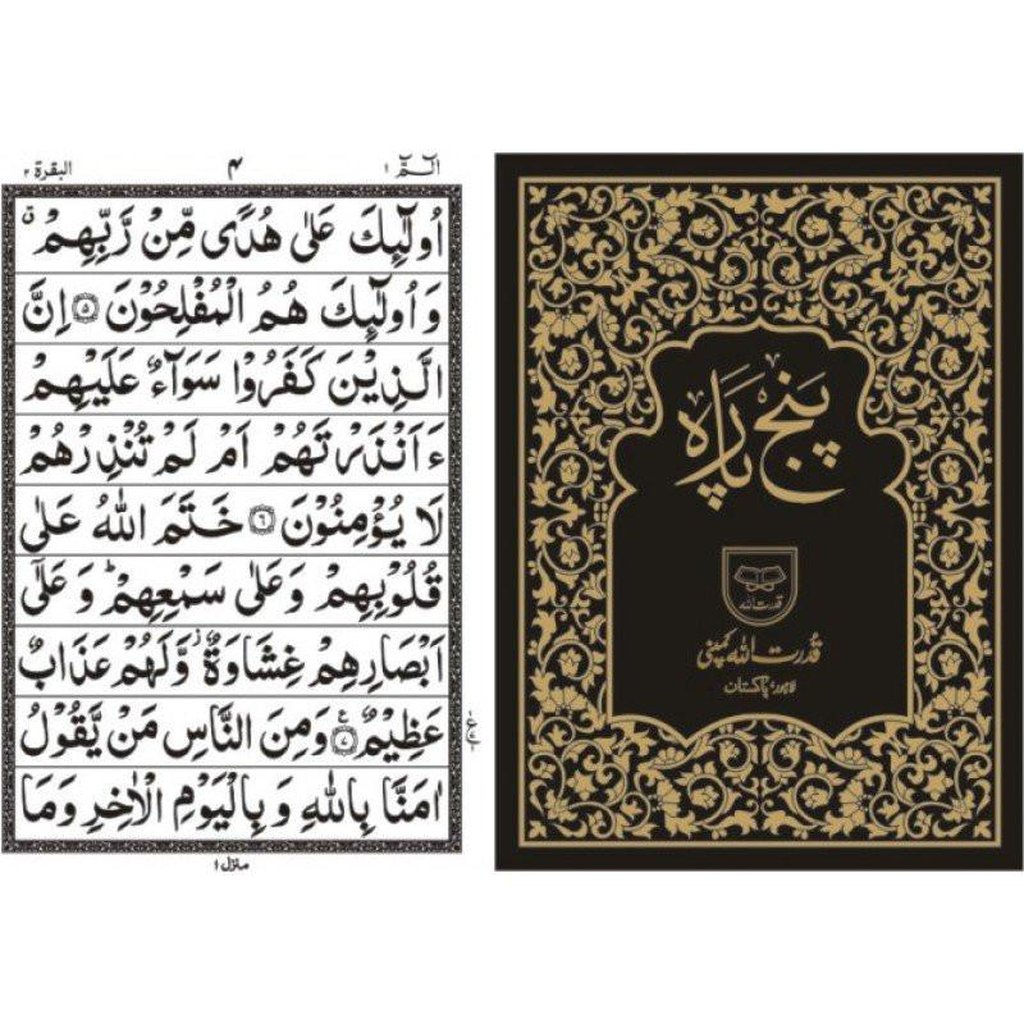 الٓمّٓ ۱
۴
البقرة ۲
اُولٰٓئِكَ عَلٰى هُدًى مِّنْ رَّبِّهِمْ ۗ
وَ اُولٰٓئِكَ هُمُ الْمُفْلِحُوْنَ ۵ اِنَّ
الَّذِيْنَ كَفَرُوْا سَوَآءٌ عَلَيْهِمْ
ءَاَنْذَرْتَهُمْ اَمْ لَمْ تُنْذِرْهُمْ
لَا يُؤْمِنُوْنَ ۶ خَتَمَ اللّٰهُ عَلٰى
قُلُوْبِهِمْ وَ عَلٰى سَمْعِهِمْ ؕ وَ عَلٰٓى
اَبْصَارِهِمْ غِشَاوَةٌ ز وَّ لَهُمْ عَذَابٌ
عَظِيْمٌ ۷ ع وَ مِنَ النَّاسِ مَنْ يَّقُوْلُ
اٰمَنَّا بِاللّٰهِ وَ بِالْيَوْمِ الْاٰخِرِ وَمَا
منزل ۱
پَنج پَارَہ
قدرت اللہ
قُدرت اللہ کمپنی
لاہور، پاکستان